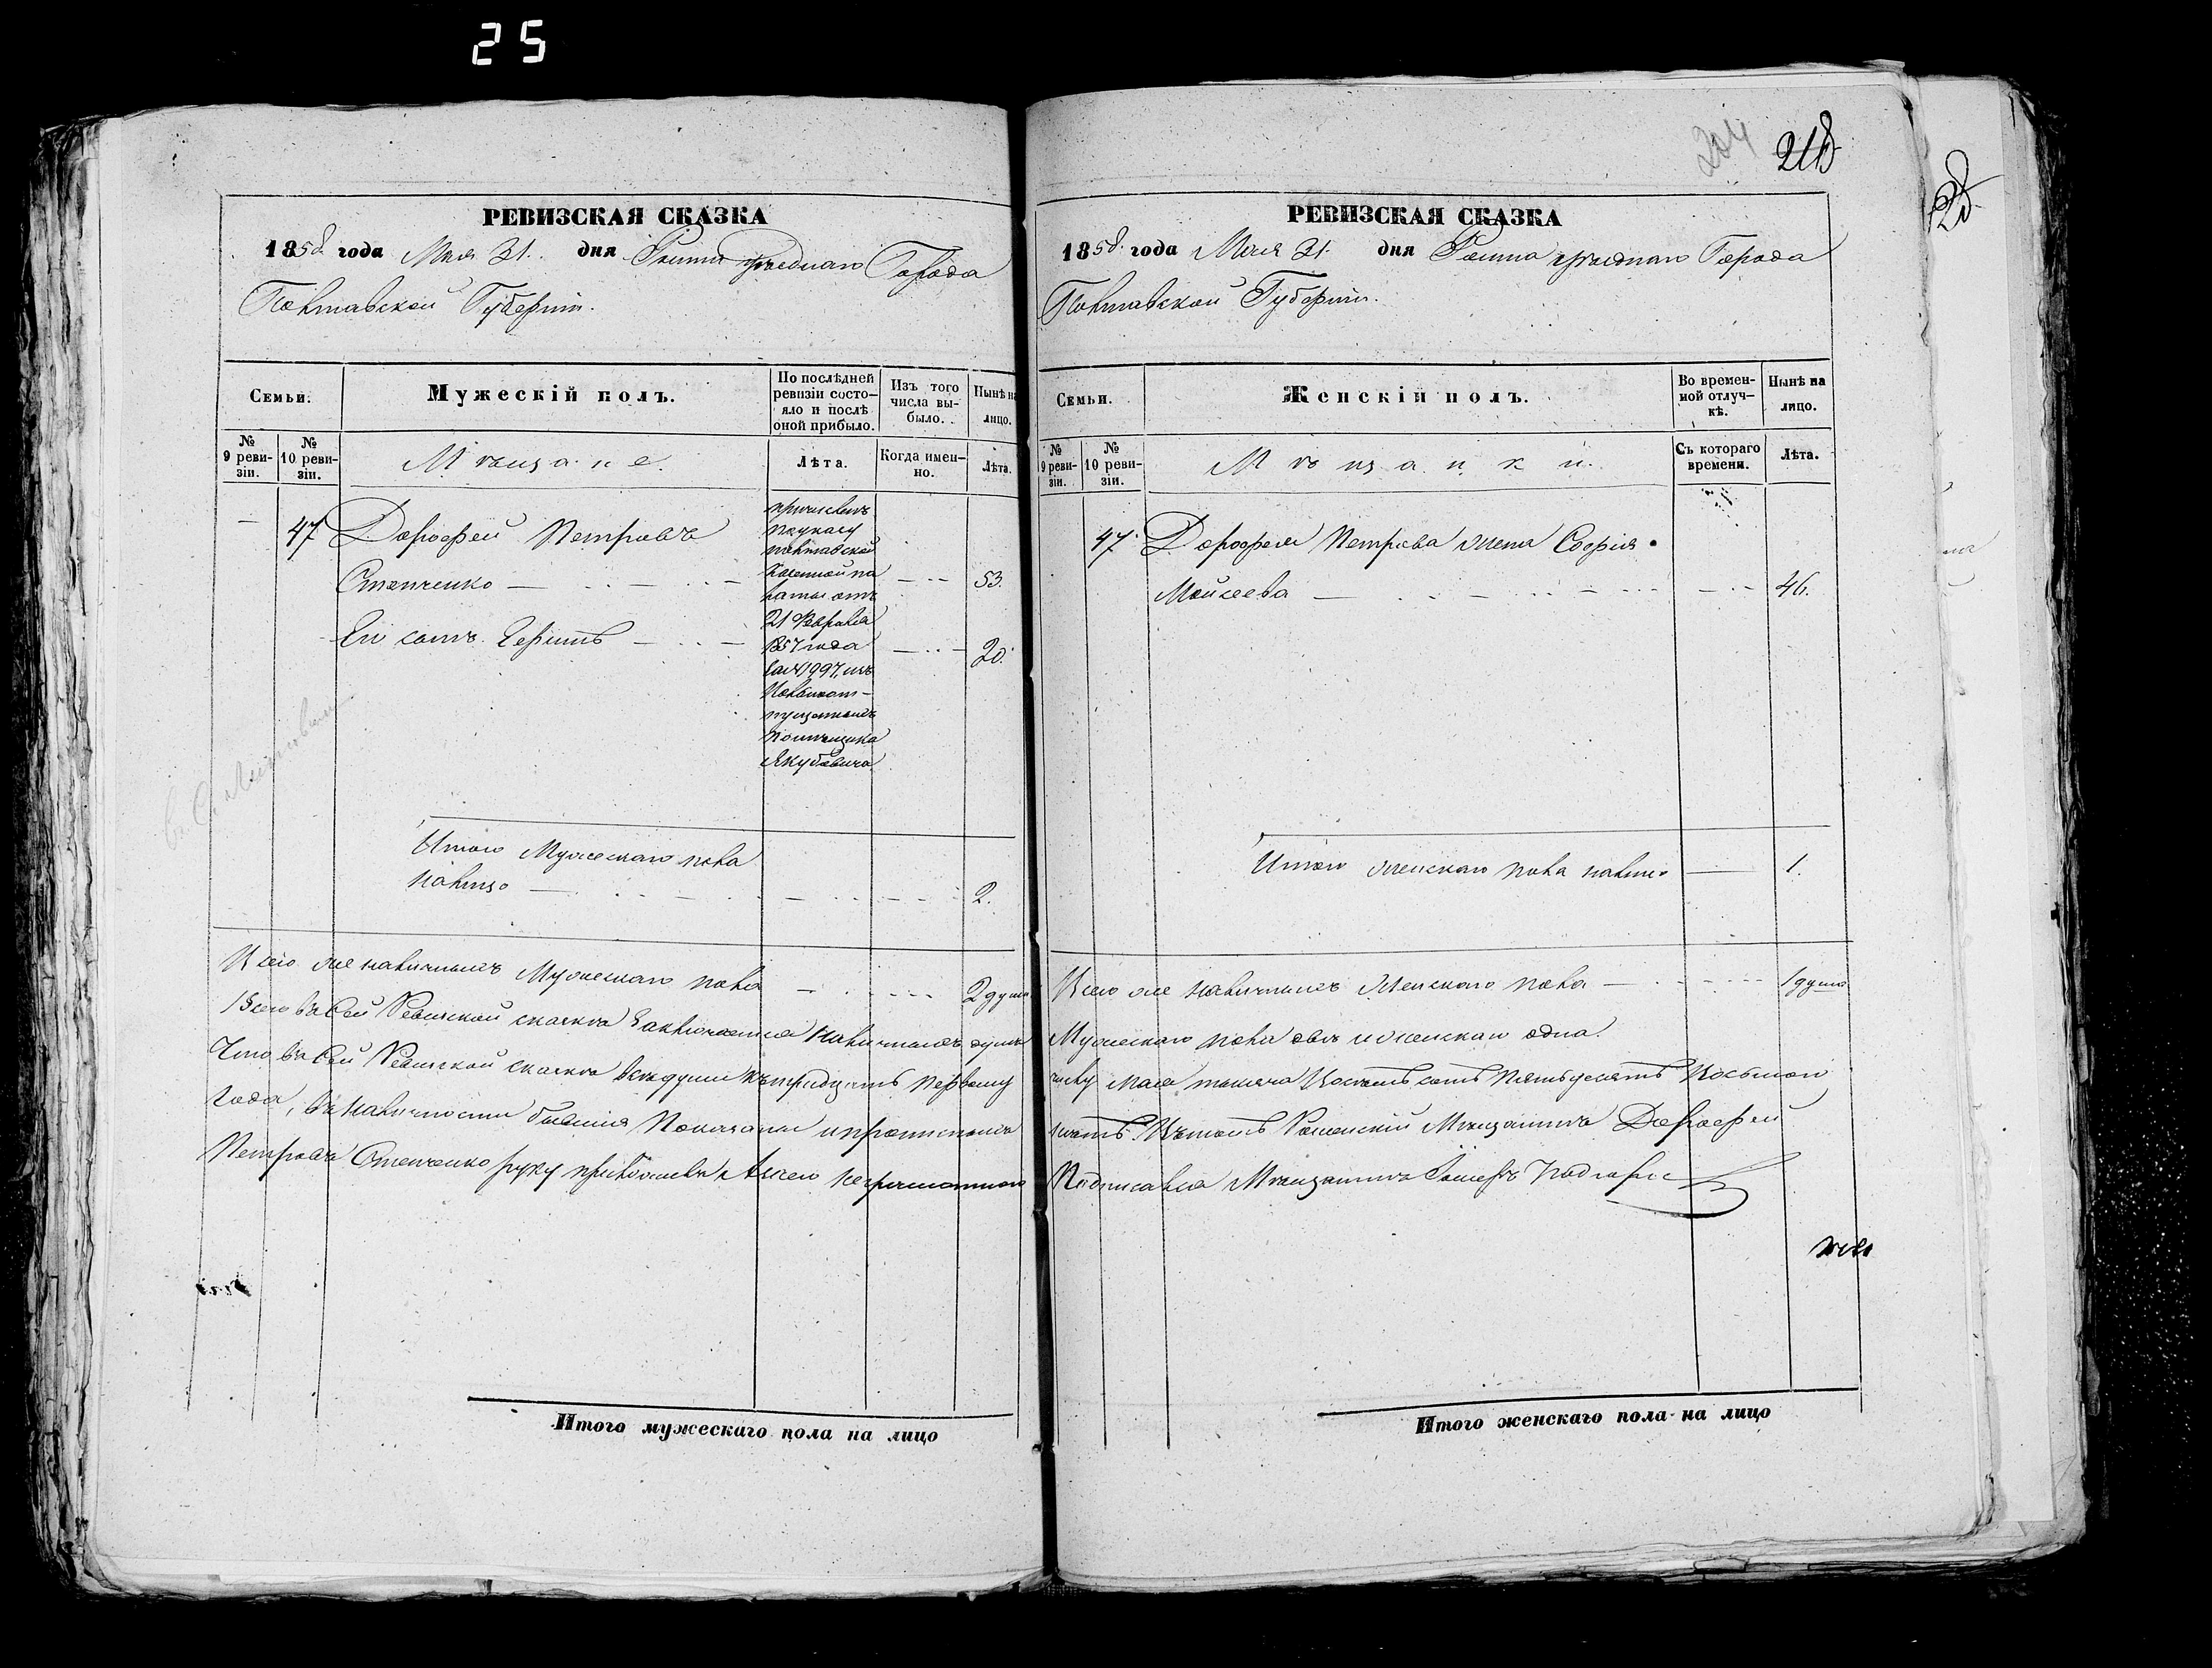 25
РЕВИЗСКАЯ СКАЗКА
1858 года Мая 31. дня Ромна уѣзднаго Города
Полтавской Губерніи.
Семьи.
Мужескій полъ.
По послѣдней ревизіи состояло и послѣ оной прибыло.
Изъ того числа выбыло.
Нынѣ на лицо.
№ 9 ревизіи.
№ 10 ревизіи.
Мѣщане.
Лѣта.
Когда именно.
Лѣта.
— 47 Дорофей Петровъ
Степченко — 53.
Его сынъ — 20.
причисленъ
по указу
полтавской
Казенной па
латы отъ
21 Февраля
1857 года
за № 1997, изъ
вольноот-
пущенныхъ
помѣщика
Якубовича
Итого Мужескаго пола
налицо — 2.
Всего же наличныхъ Мужескаго пола — 2 души
Всего въ Сей Ревизской сказкѣ заключается наличныхъ душъ
Что въ Сей Ревизской сказкѣ всѣ души къ тридцать первому
года, въ наличности бывшія показаны и прописныхъ
Петровъ Степченко руку приложилъ а вмѣсто его неграмотнаго
Итого мужескаго пола на лицо
204
218
РЕВИЗСКАЯ СКАЗКА
1858 года Мая 31. дня Ромна уѣзднаго Города
Полтавской Губерніи.
Семьи.
Женскій полъ.
Во временной отлучкѣ.
Нынѣ на лицо.
№ 9 ревизіи.
№ 10 ревизіи.
Мѣщанки.
Съ котораго времени.
Лѣта.
47. Дорофея Петрова жена Софія
Мойсеева — 46.
Итого женскаго пола налицо — 1.
Всего же наличныхъ Женскаго пола — 1 душа
Мужескаго пола двѣ и женскаго одна.
числу мая тысяча восемь сотъ пятьдесятъ восьмого
нѣтъ. Въ томъ Роменскій Мѣщанинъ Дорофей
Подписался Мѣщанинъ
Итого женскаго пола на лицо